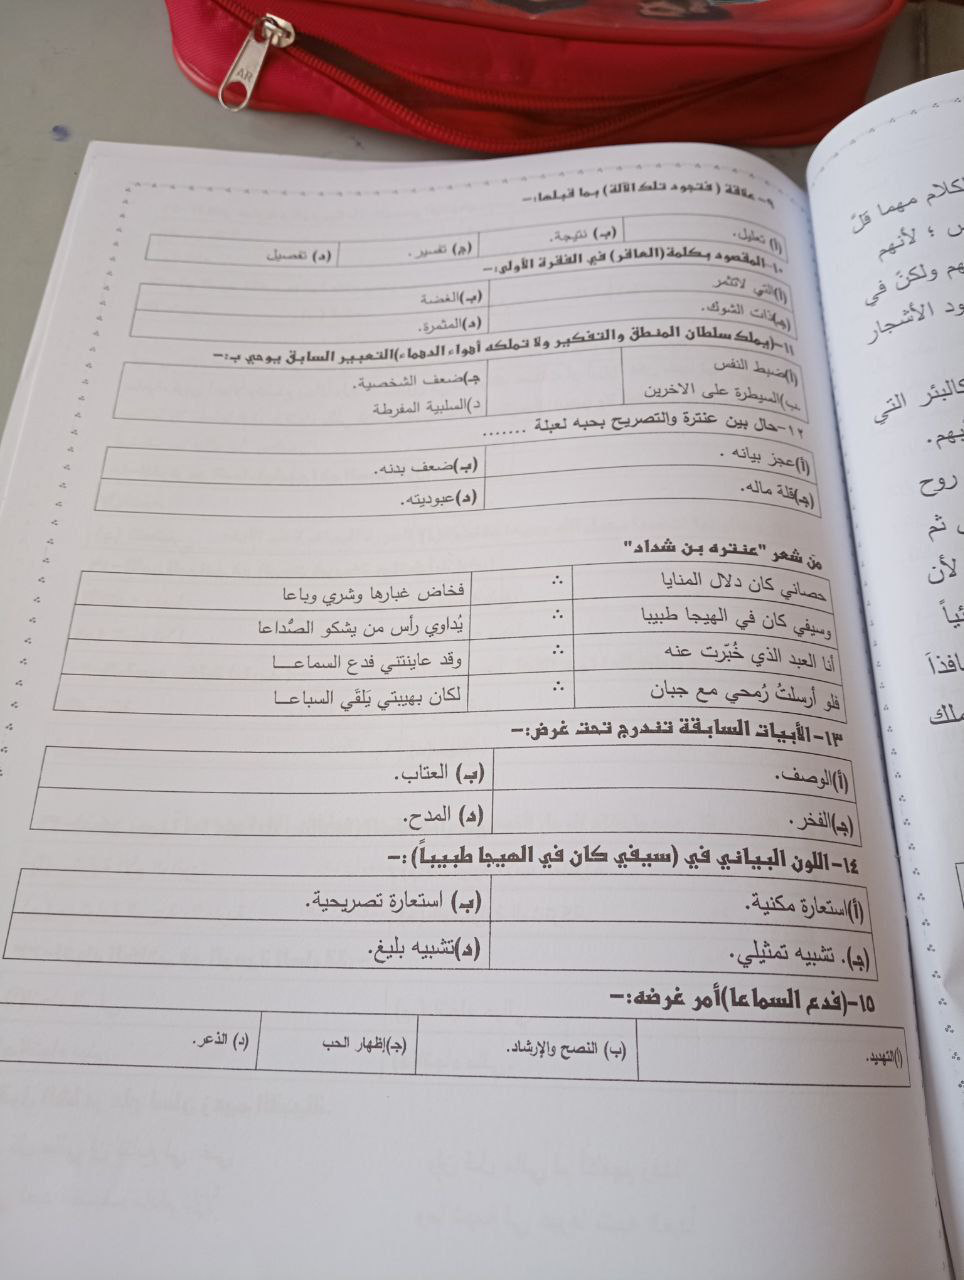 AR
٩- علاقة ( فتجود تلك الآلة) بما قبلها:-
(أ) تعليل. (ب) نتيجة. (ج) تفسير. (د) تفصيل
١٠-المقصود بكلمة(العاقر) في الفقرة الأولى:-
(أ)التي لاتثمر (ب)الغضة
(ج)ذات الشوك. (د)المثمرة.
١١-(يملك سلطان المنطق والتفكير ولا تملكه أهواء الدهماء)التعبير السابق يوحي ب:-
(أ)ضبط النفس ج)ضعف الشخصية.
ب)السيطرة على الاخرين د)السلبية المفرطة
١٢-حال بين عنترة والتصريح بحبه لعبلة .......
(أ)عجز بيانه . (ب)ضعف بدنه.
(ج)قلة ماله. (د)عبوديته.
من شعر "عنتره بن شداد"
حصاني كان دلال المنايا ∴ فخاض غبارها وشري وباعا
وسيفي كان في الهيجا طبيبا ∴ يُداوي رأس من يشكو الصُّداعا
أنا العبد الذي خُبّرت عنه ∴ وقد عاينتني فدع السماعـــا
فلو أرسلتُ رُمحي مع جبان ∴ لكان بهيبتي يَلقَي السباعـــا
١٣-الأبيات السابقة تندرج تحت غرض:-
(أ)الوصف. (ب) العتاب.
(ج)الفخر. (د) المدح.
١٤-اللون البياني في (سيفي كان في الهيجا طبيباً):-
(أ)استعارة مكنية. (ب) استعارة تصريحية.
(ج). تشبيه تمثيلي. (د)تشبيه بليغ.
١٥-(فدع السماعا)أمر غرضه:-
(أ)التهديد. (ب) النصح والإرشاد. (ج)إظهار الحب (د) الذعر.
لكلام مهما قلّ
؛ لأنهم
هم ولكنّ في
ود الأشجار
كالبئر التي
روح
ثم
لأن